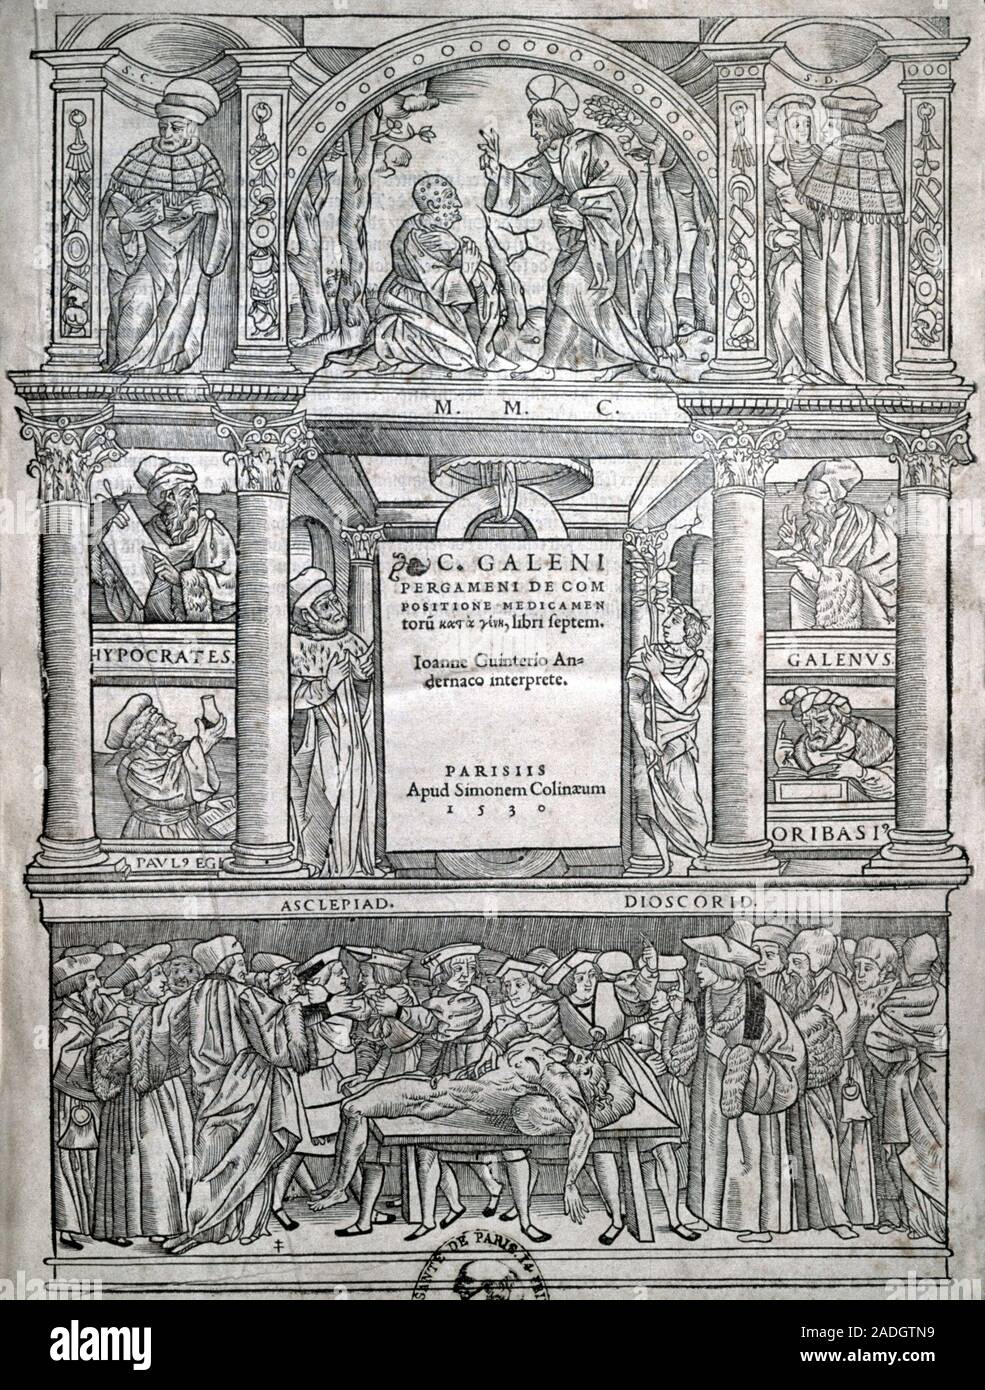 S. C.
S. D.
M. M. C.
C. GALENI
PERGAMENI DE COM
POSITIONE MEDICAMEN
torũ κατὰ γένη, libri septem.
Ioanne Guinterio An=
dernaco interprete.
PARISIIS
Apud Simonem Colinæum
1530
HYPOCRATES.
GALENVS.
PAVLꝰ EGI
ORIBASIꝰ
ASCLEPIAD.
DIOSCORID.
SANTÉ DE PARIS.
alamy
Image ID: 2ADGTN9
www.alamy.com